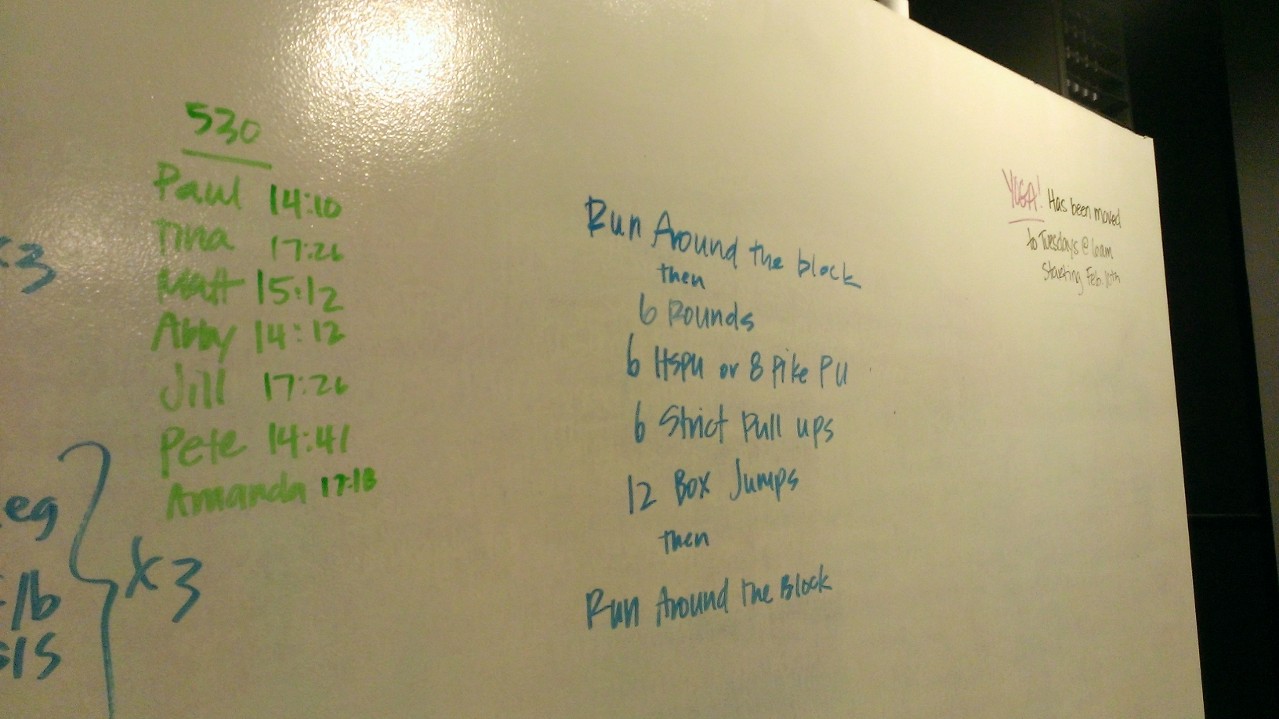 530
Paul 14:10
Tina 17:26
Matt 15:12
Abby 14:12
Jill 17:26
Pete 14:41
Amanda 17:18
x3
eg
/b
x3
Run Around the block
then
6 Rounds
6 HSPU or 8 Pike PU
6 Strict Pull ups
12 Box Jumps
then
Run Around the Block
YOGA! Has been moved
to Tuesdays @
Starting Feb. 10th